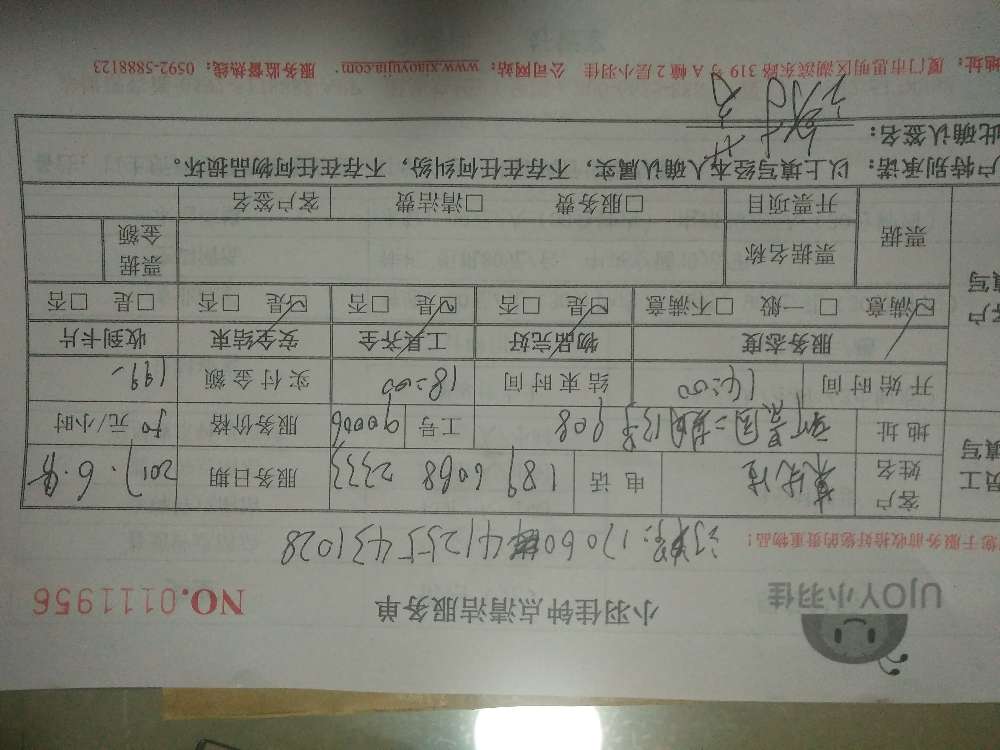 UJOY小羽佳
小羽佳钟点清洁服务单
NO.0111956
您于服务前收拾好您的贵重物品！
1706094125543 1028
客户姓名 电话 189 6068 2333 服务日期 2017.6.
地址 新景园二期13号 908 工号 90006 服务价格 50 元/小时
开始时间 14:00 结束时间 18:00 实付金额 199-
服务态度 物品完好 工具齐全 安全结束 收到卡片
☑满意 □一般 □不满意 ☑是 □否 ☑是 □否 ☑是 □否 □是 □否
票据 票据名称 票据金额
开票项目 □服务费 □清洁费 客户签名
员工填写
客户填写
户特别承诺：以上填写经本人确认属实，不存在任何纠纷，不存在任何物品损坏。
此确认签名：
地址：厦门市思明区湖滨东路 319 号 A 幢 2 层小羽佳 公司网站：www.xiaoyujia.com. 服务监督热线：0592-5888123